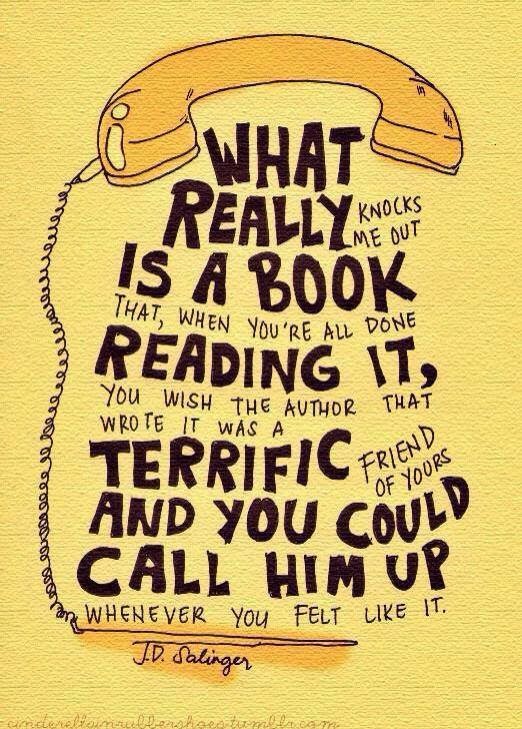 WHAT
REALLY KNOCKS
ME OUT
IS A BOOK
THAT, WHEN YOU'RE ALL DONE
READING IT,
YOU WISH THE AUTHOR THAT
WROTE IT WAS A
TERRIFIC FRIEND
OF YOURS
AND YOU COULD
CALL HIM UP
WHENEVER YOU FELT LIKE IT.
J.D. Salinger
cinderellainrubbershoes.tumblr.com